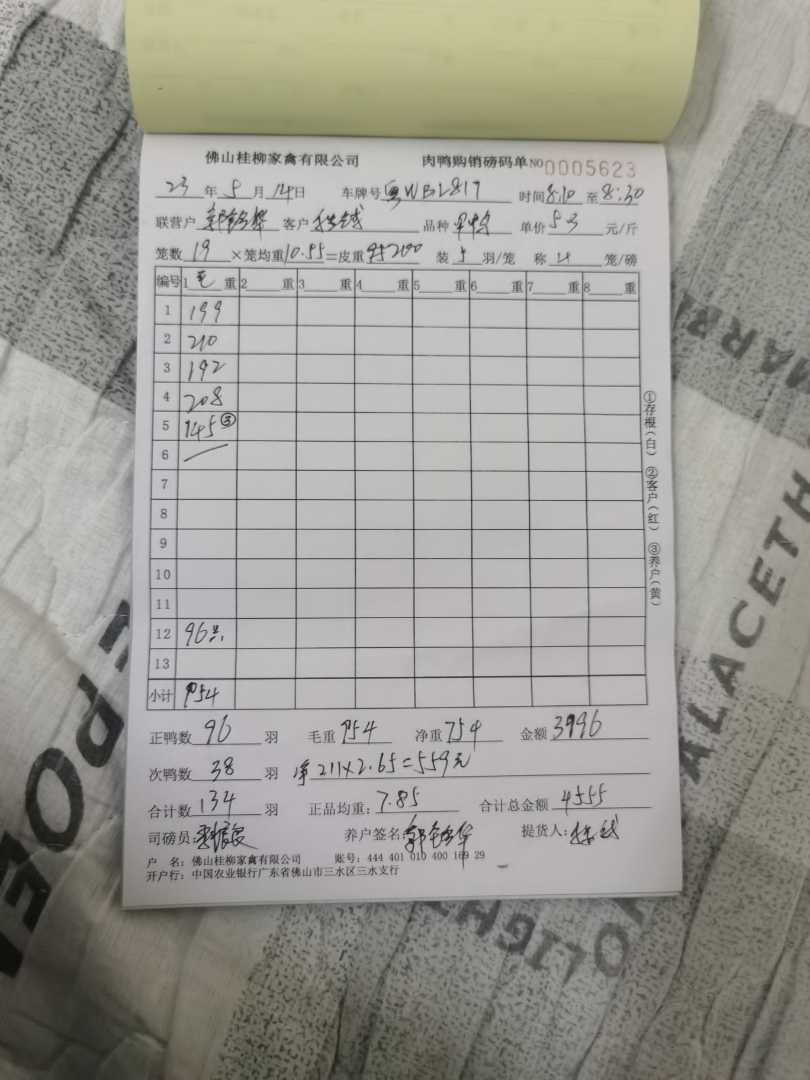 佛山桂柳家禽有限公司 肉鸭购销磅码单 NO 0005623
23 年 5 月 14 日 车牌号 粤WBL817 时间 8:10 至 8:30
联营户 客户 品种 单价 5.3 元/斤
笼数 19 ×笼均重 10.55 =皮重 装 5 羽/笼 称 4 笼/磅
编号 1 毛 重 2 重 3 重 4 重 5 重 6 重 7 重 8 重
1 199
2 210
3 192
4 208
5 145 ③
6
7
8
9
10
11
12 96只
13
小计 954
①存根(白) ②客户(红) ③养户(黄)
正鸭数 96 羽 毛重 954 净重 754 金额 3996
次鸭数 38 羽 净 211×2.65=559元
合计数 134 羽 正品均重: 7.85 合计总金额 4555
司磅员: 养户签名: 提货人:
户 名: 佛山桂柳家禽有限公司 账号: 444 401 010 400 169 29
开户行: 中国农业银行广东省佛山市三水区三水支行
PALACETH